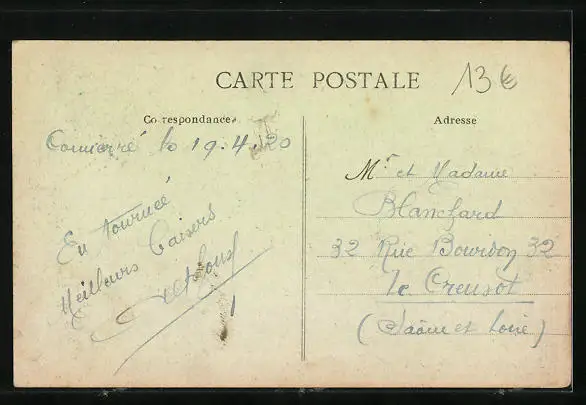 CARTE POSTALE
13€
Correspondance
Adresse
le 19.4.20
En tournée
Meilleurs baisers
Mr et Madame
Blanchard
32 Rue Bourdon 32
Le Creusot
(Saône et Loire)